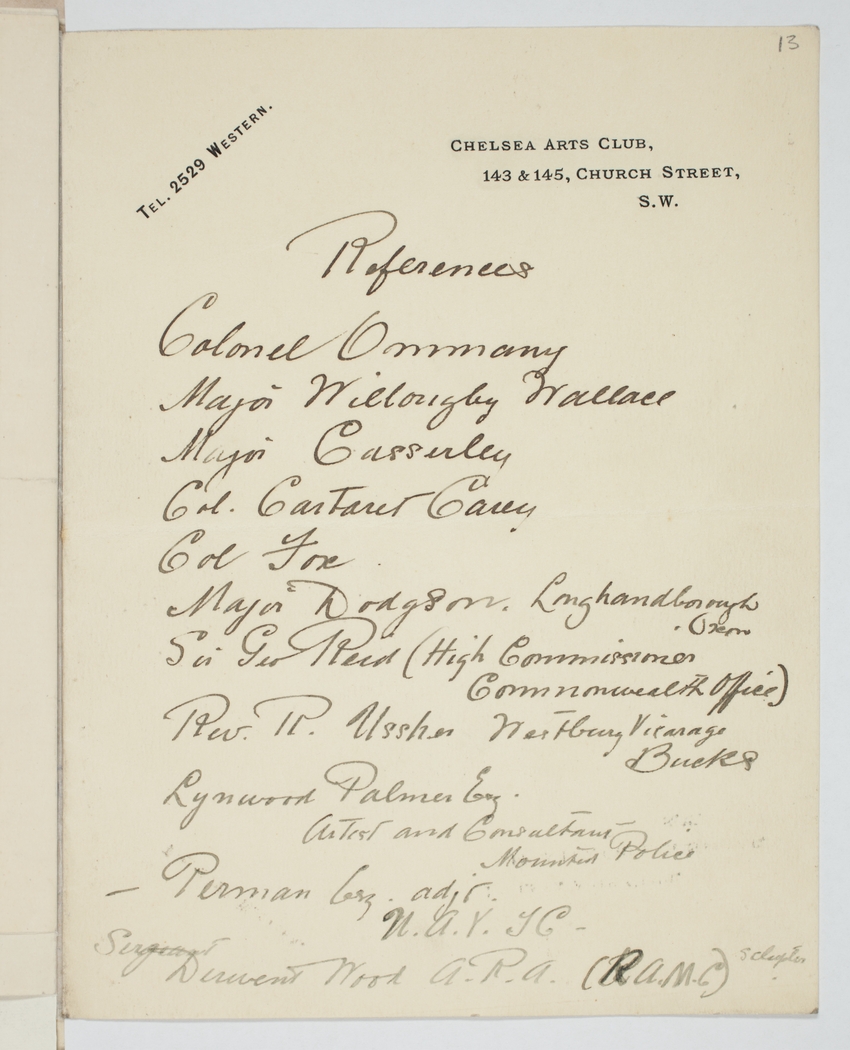 13
Tel. 2529 Western.
Chelsea Arts Club,
143 & 145, Church Street,
S.W.
References
Colonel Ommany
Major Willougby Wallace
Major Casserley
Col. Cartaret Carey
Col Fox
Major Dodgson. Longhandborough
Oxon
Sir Geo Reid (High Commissioner
Commonwealth Office)
Rev. R. Ussher Westbury Vicarage
Bucks
Lynwood Palmer Esq.
Artist and Consultant
Mounted Police
— Perman Esq. adjt.
U.A.V. T C -
Sergeant
Derwent Wood A.R.A. (R.A.M.C) sculptor